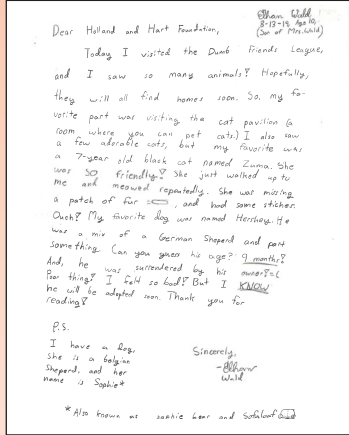 Elham Wald
8-13-19, Age 10,
(Son of Mrs. Wald)
Dear Holland and Hart Foundation,
Today I visited the Dumb Friends League,
and I saw so many animals! Hopefully,
they will all find homes soon. So, my fa-
vorite part was visiting the cat pavilion (a
room where you can pet cats.) I also saw
a few adorable cats, but my favorite was
a 7-year old black cat named Zuma. She
was SO friendly! She just walked up to
me and meowed repeatedly. She was missing
a patch of fur, and had some stiches.
Ouch! My favorite dog was named Hershey. He
was a mix of a German Sheperd and part
something (can you guess his age? 9 months!
And, he was surrendered by his owner! =(
Poor thing! I felt so bad! But I KNOW
he will be adopted soon. Thank you for
reading!
P.S.
I have a dog,
she is a belgian
Sheperd, and her
name is Sophie*
Sincerely,
-Elham
Wald
*Also known as sophie bear and Sofaloaf